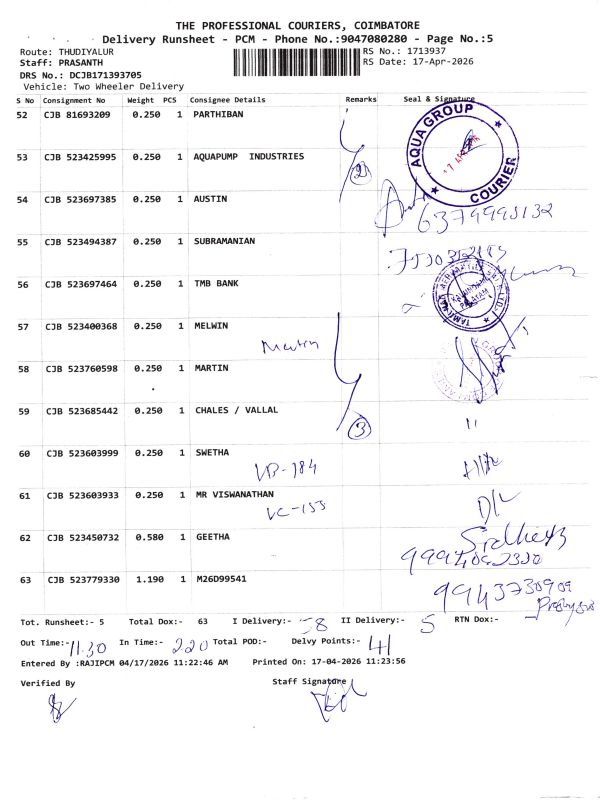 THE PROFESSIONAL COURIERS, COIMBATORE
Delivery Runsheet - PCM - Phone No.:9047080280 - Page No.:5
Route: THUDIYALUR RS No.: 1713937
Staff: PRASANTH RS Date: 17-Apr-2026
DRS No.: DCJB171393705
Vehicle: Two Wheeler Delivery
S No Consignment No Weight PCS Consignee Details Remarks Seal & Signature
52 CJB 81693209 0.250 1 PARTHIBAN
AQUA GROUP
COURIER
53 CJB 523425995 0.250 1 AQUAPUMP INDUSTRIES
2
54 CJB 523697385 0.250 1 AUSTIN
55 CJB 523494387 0.250 1 SUBRAMANIAN
56 CJB 523697464 0.250 1 TMB BANK
57 CJB 523400368 0.250 1 MELWIN
58 CJB 523760598 0.250 1 MARTIN
59 CJB 523685442 0.250 1 CHALES / VALLAL
3 "
60 CJB 523603999 0.250 1 SWETHA
VB-184
61 CJB 523603933 0.250 1 MR VISWANATHAN
VC-153 D/L
62 CJB 523450732 0.580 1 GEETHA
63 CJB 523779330 1.190 1 M26D99541
9943730909
Tot. Runsheet:- 5 Total Dox:- 63 I Delivery:- 58 II Delivery:- 5 RTN Dox:-
Out Time:- 11.30 In Time:- 220 Total POD:- Delvy Points:- 41
Entered By :RAJIPCM 04/17/2026 11:22:46 AM Printed On: 17-04-2026 11:23:56
Verified By Staff Signature